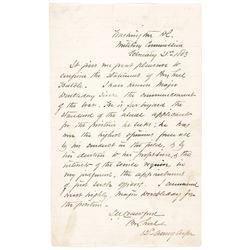 Washington D.C.
Military Commission
February 21st 1863
It gives me great pleasure to
confirm the statement of Brig Genl
I have known Major
Doubleday since the commencement
of the war. He is far beyond the
standard of the usual applicants
for the position he seeks; he has
won the highest opinions from all
by his conduct in the field, & by
his devotion to his profession, & the
interests of the service require in
my judgment, the appointment
of just such officers. I commend
most highly Major Doubleday for
the position.
Brig Genl